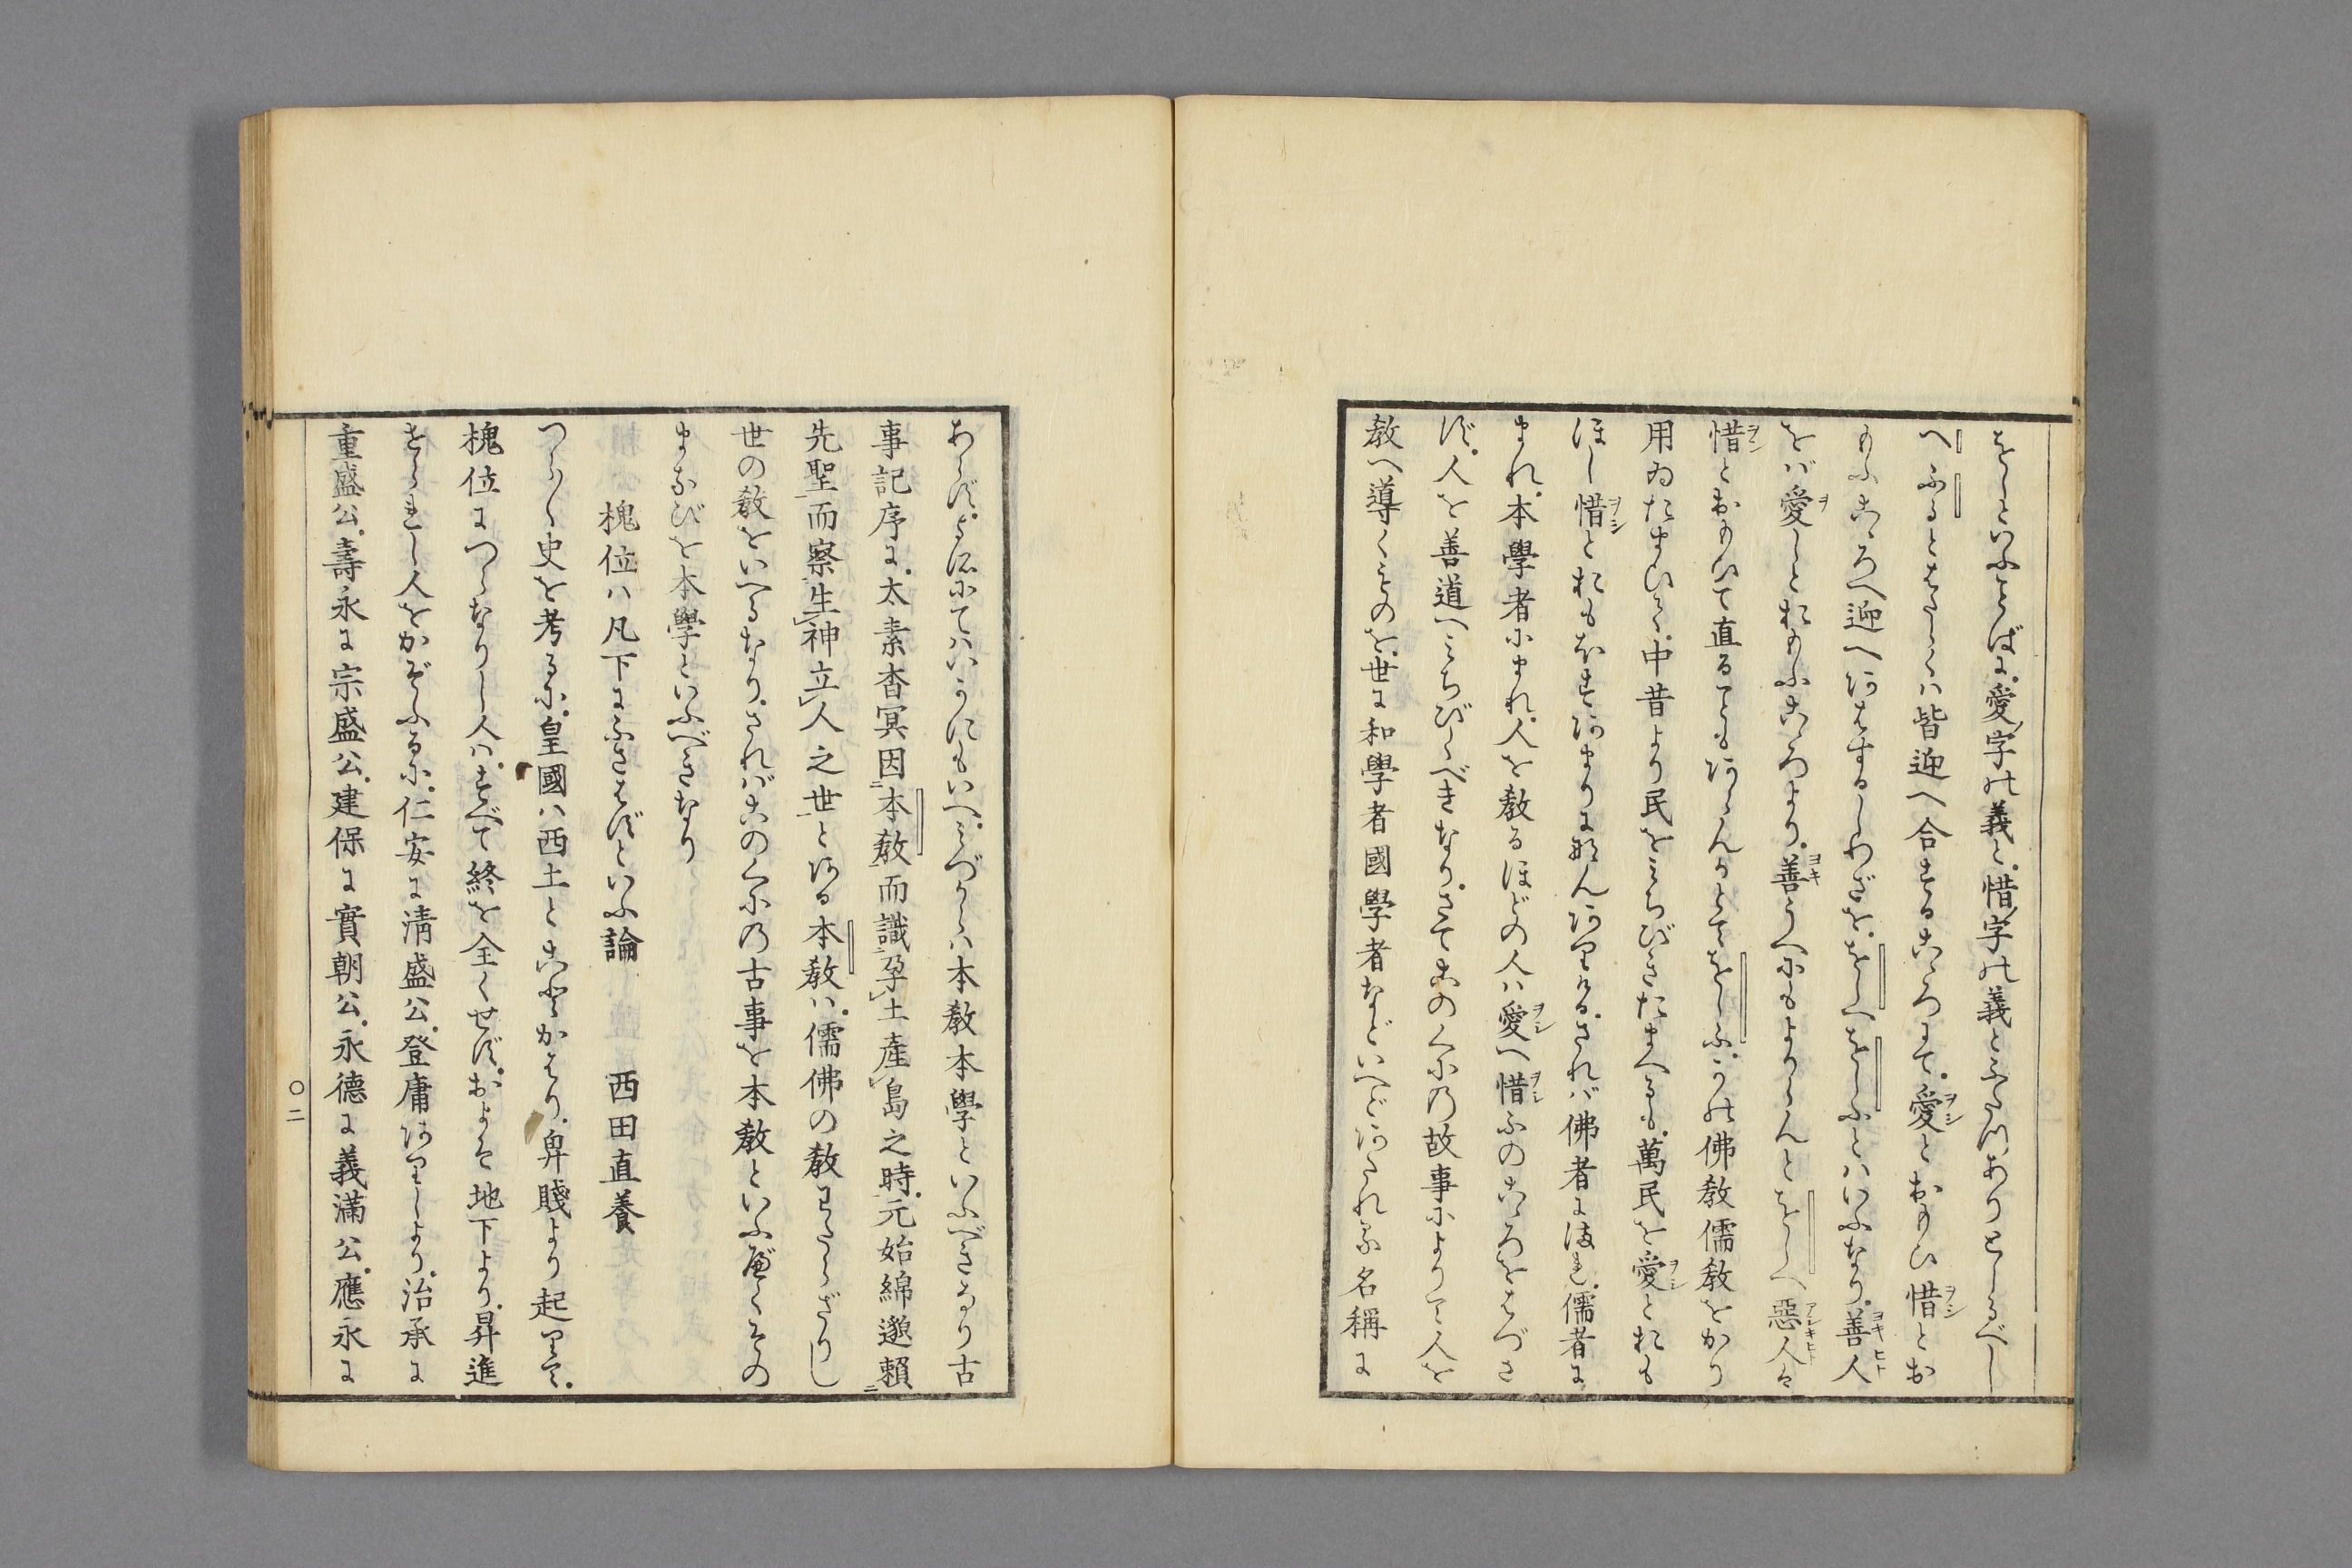 をしといふことばに愛字の義と惜字の義とふたつありとしるべし
へふるとはたらくハ皆迎へ合するこゝろにて愛とおもひ惜とお
もふこゝろへ迎へあはするしわざををしへをしふとハいふなり善人
をバ愛しとおもふこゝろより善うへにもよからんとをしへ惡人は
惜とおもひて直ることもあらんかとてをしふかの佛教儒教をかり
用ゐたまひて中昔より民をみちびきたまへるも萬民を愛とおも
ほし惜とおもほすあまりになんありける されバ佛者にまれ儒者に
まれ本學者にまれ人を教るほどの人ハ愛へ惜ふのこゝろをはづさ
ず人を善道へみちびくべきなりさてこのくにの故事によりて人を
教へ導くものを世に和學者國學者などいへどあたれる名稱に
あらずよそにてハいかにもいへみづからハ本教本學といふべきなり古
事記序に太素杳冥因本教而識孕土産島之時元始綿邈賴
先聖而察生神立人之世とある本教ハ儒佛の教わたらざりし
世の教をいへるなりされバこのくにの古事を本教といふべくその
まなびを本學といふべきなり
槐位ハ凡下にふさはずといふ論 西田直養
つらく史を考るに皇國ハ西土とことかはり卑賤より起りて
槐位につらなりし人ハすべて終を全くせずおよそ地下より昇進
せられし人をかぞふるに仁安に清盛公登庸ありしより治承に
重盛公壽永に宗盛公建保に實朝公永德に義滿公應永に
〇二